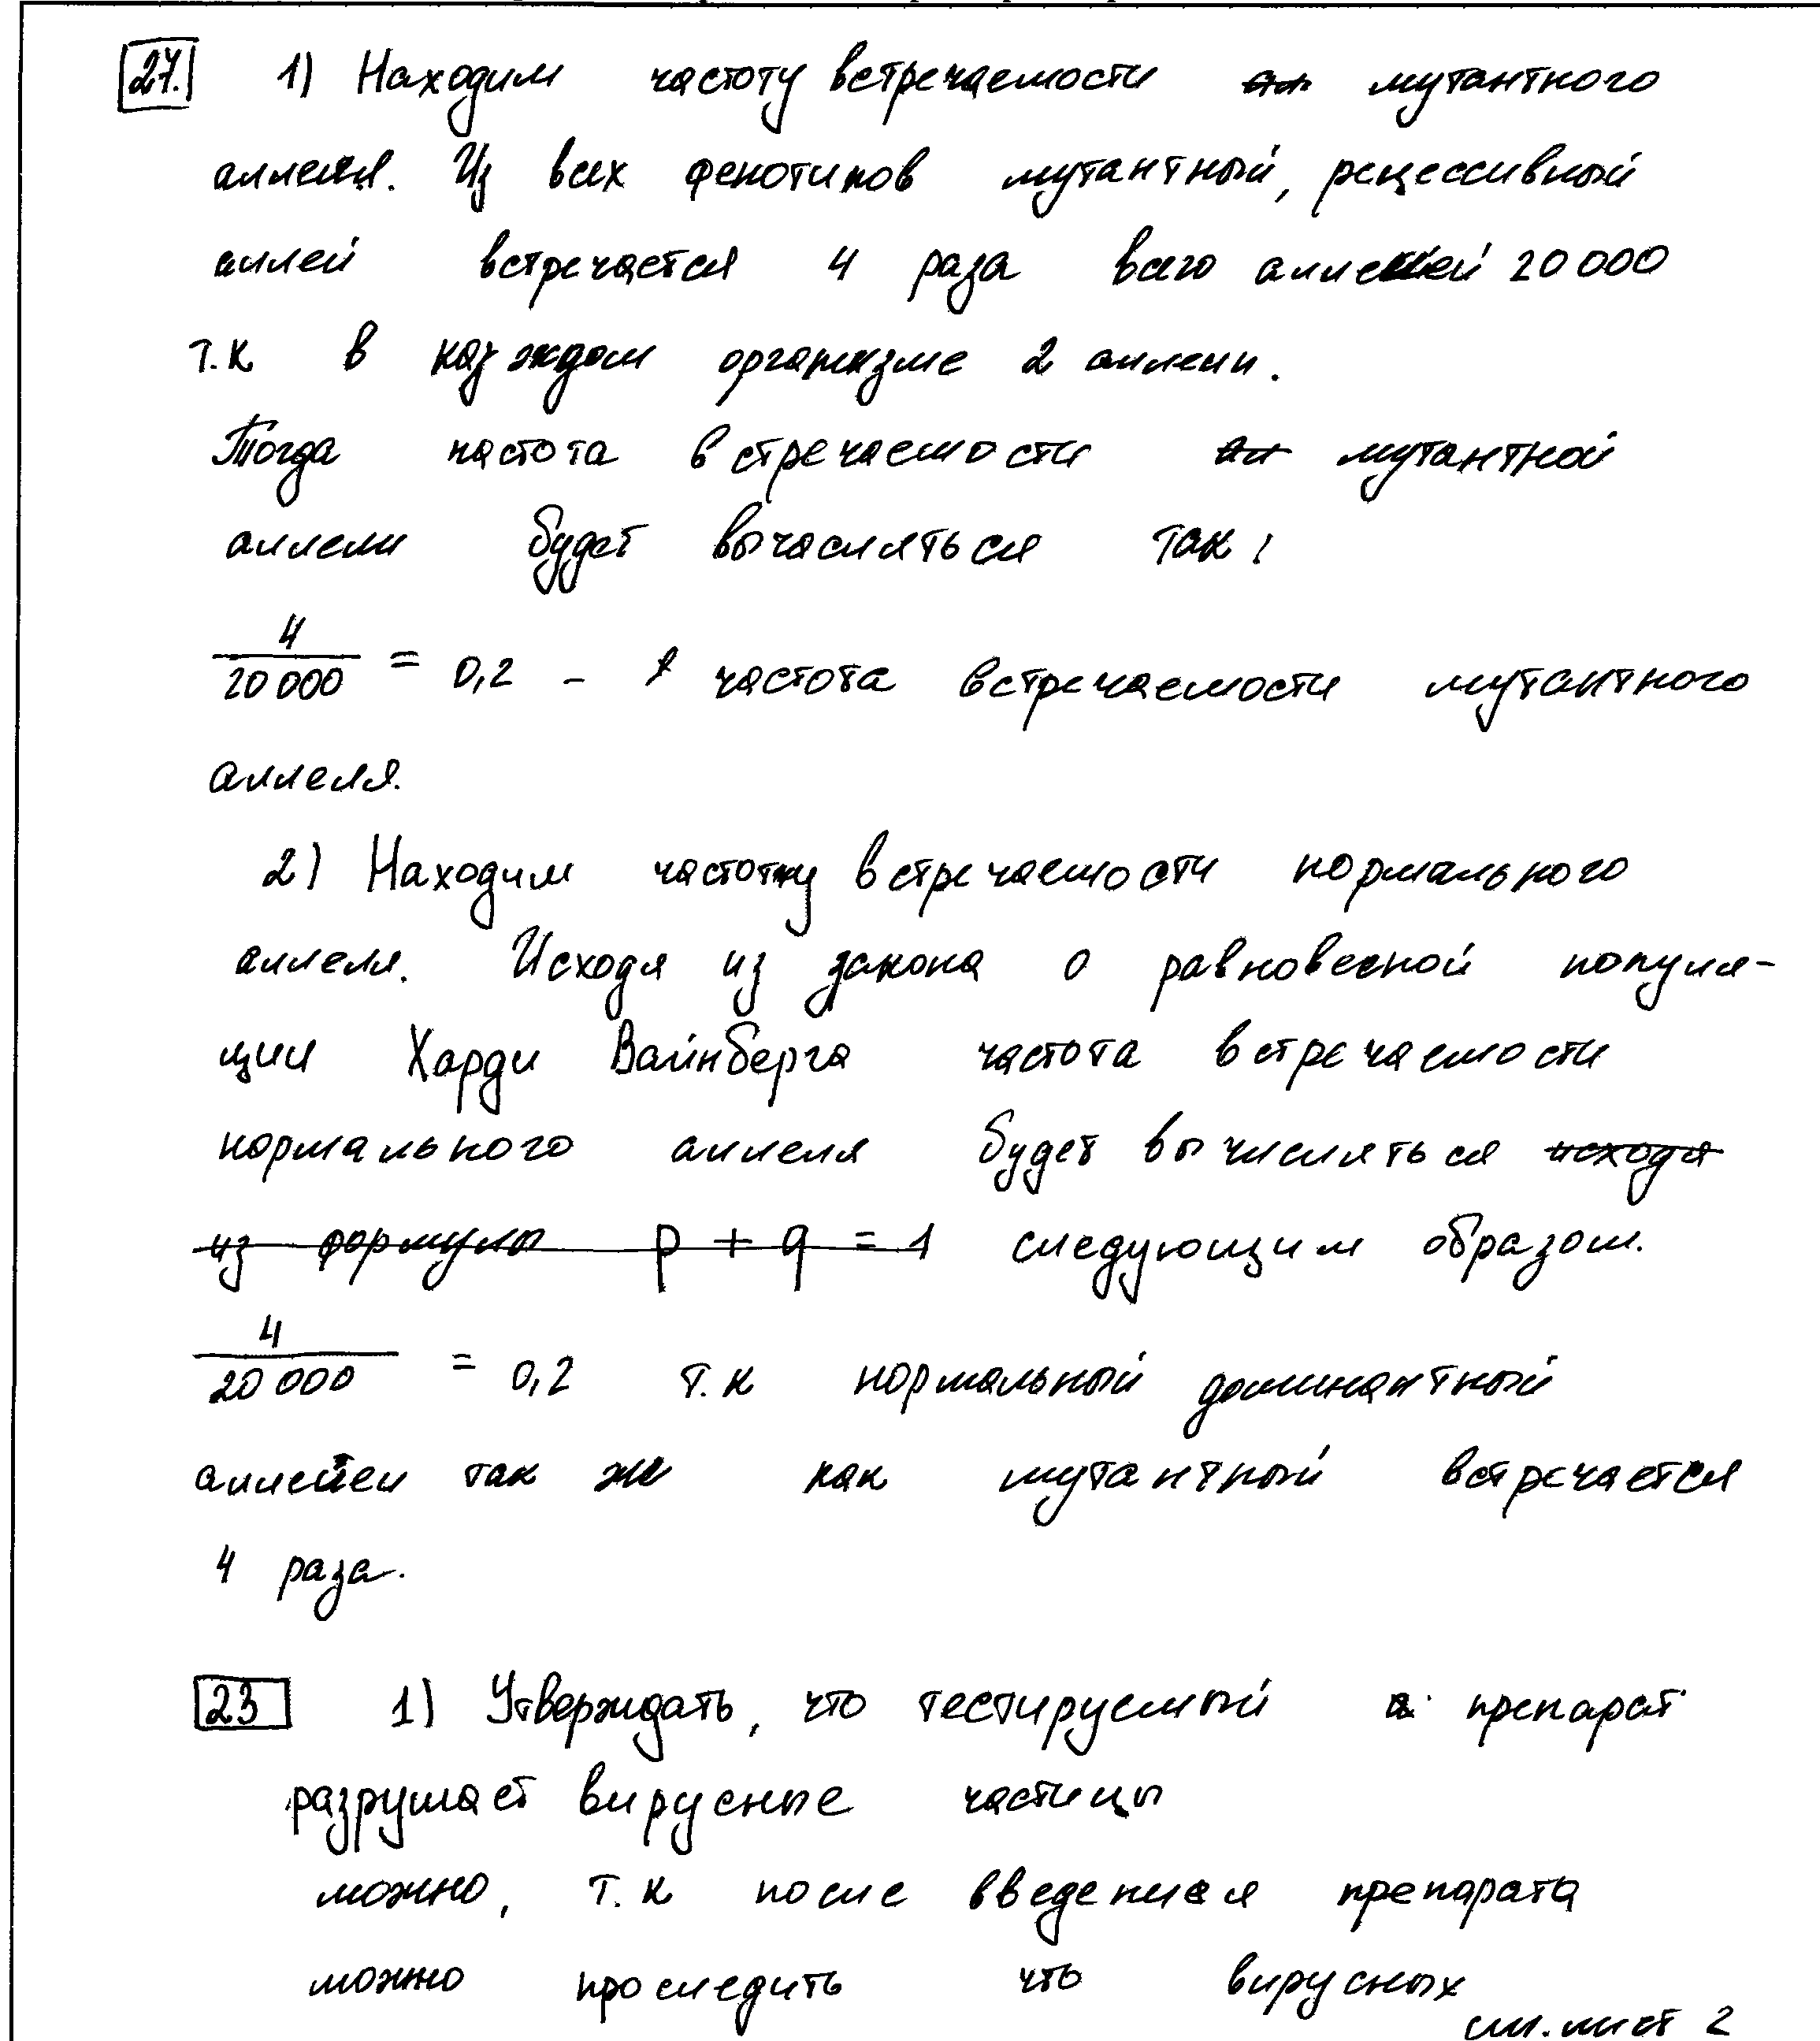 27. 1) Находим частоту встречаемости ал мутантного
аллеля. Из всех фенотипов мутантный, рецессивный
аллей встречается 4 раза всего аллелей 20 000
т.к в каждом организме 2 аллели.
Тогда частота встречаемости ал мутантной
аллели будет вычасляться так:
4
20 000 = 0,2 - частота встречаемости мутантного
аллеля.
2) Находим частоту встречаемости нормального
аллеля. Исходя из закона о равновесной популя-
ции Харди Вайнберга частота встречаемости
нормального аллеля будет вычисляться исходя
из формулы p + q = 1 следующим образом.
4
20 000 = 0,2 т.к нормальный доминантный
так же как мутантный встречается
4 раза.
23 1) Утверждать, что тестируемый препарат
разрушает вирусные частицы
можно, т.к после введения препарата
можно проследить что вирусных
см. лист 2